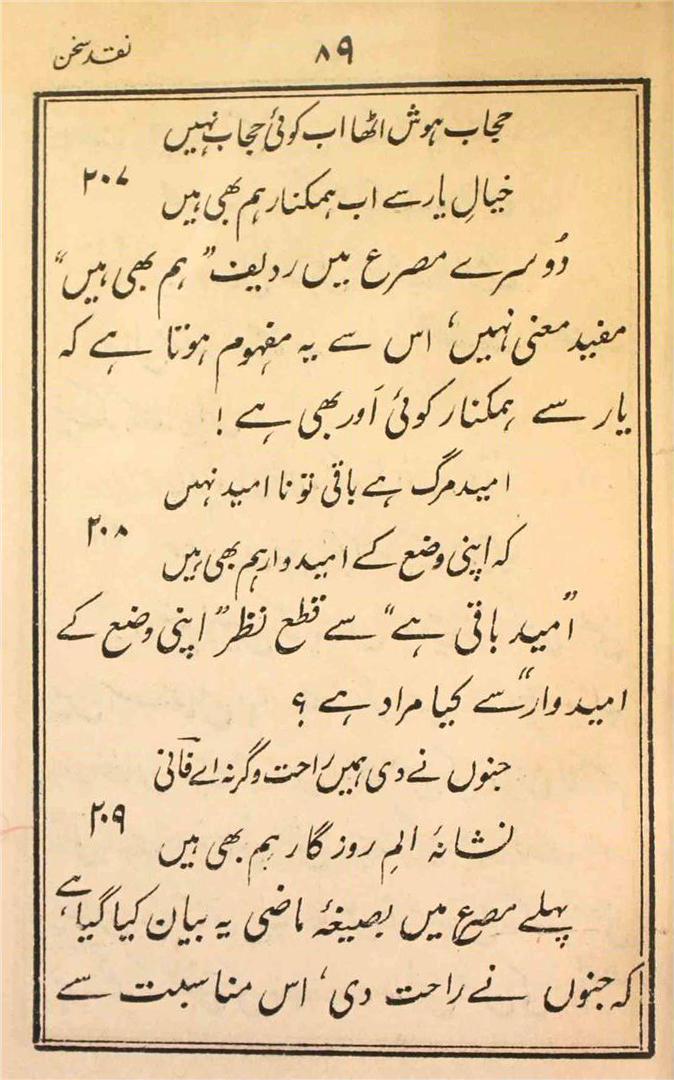 نقد سخن
۸۹
حجاب ہوش اٹھا اب کوئی حجاب نہیں
۲۰۷
خیالِ یار سے اب ہمکنار ہم بھی ہیں
دُوسرے مصرع میں ردیف ”ہم بھی ہیں“
مفید معنی نہیں، اس سے یہ مفہوم ہوتا ہے کہ
یار سے ہمکنار کوئی اَور بھی ہے !
امید مرگ ہے باقی تو نا امید نہیں
۲۰۸
کہ اپنی وضع کے امیدوار ہم بھی ہیں
”امید باقی ہے“ سے قطع نظر ”اپنی وضع کے
امیدوار“ سے کیا مراد ہے ؟
جنوں نے دی ہمیں راحت وگرنہ اے فانی
۲۰۹
نشانۂ المِ روزگار ہم بھی ہیں
پہلے مصرع میں بصیغۂ ماضی یہ بیان کیا گیا ہے
کہ جنوں نے راحت دی، اس مناسبت سے